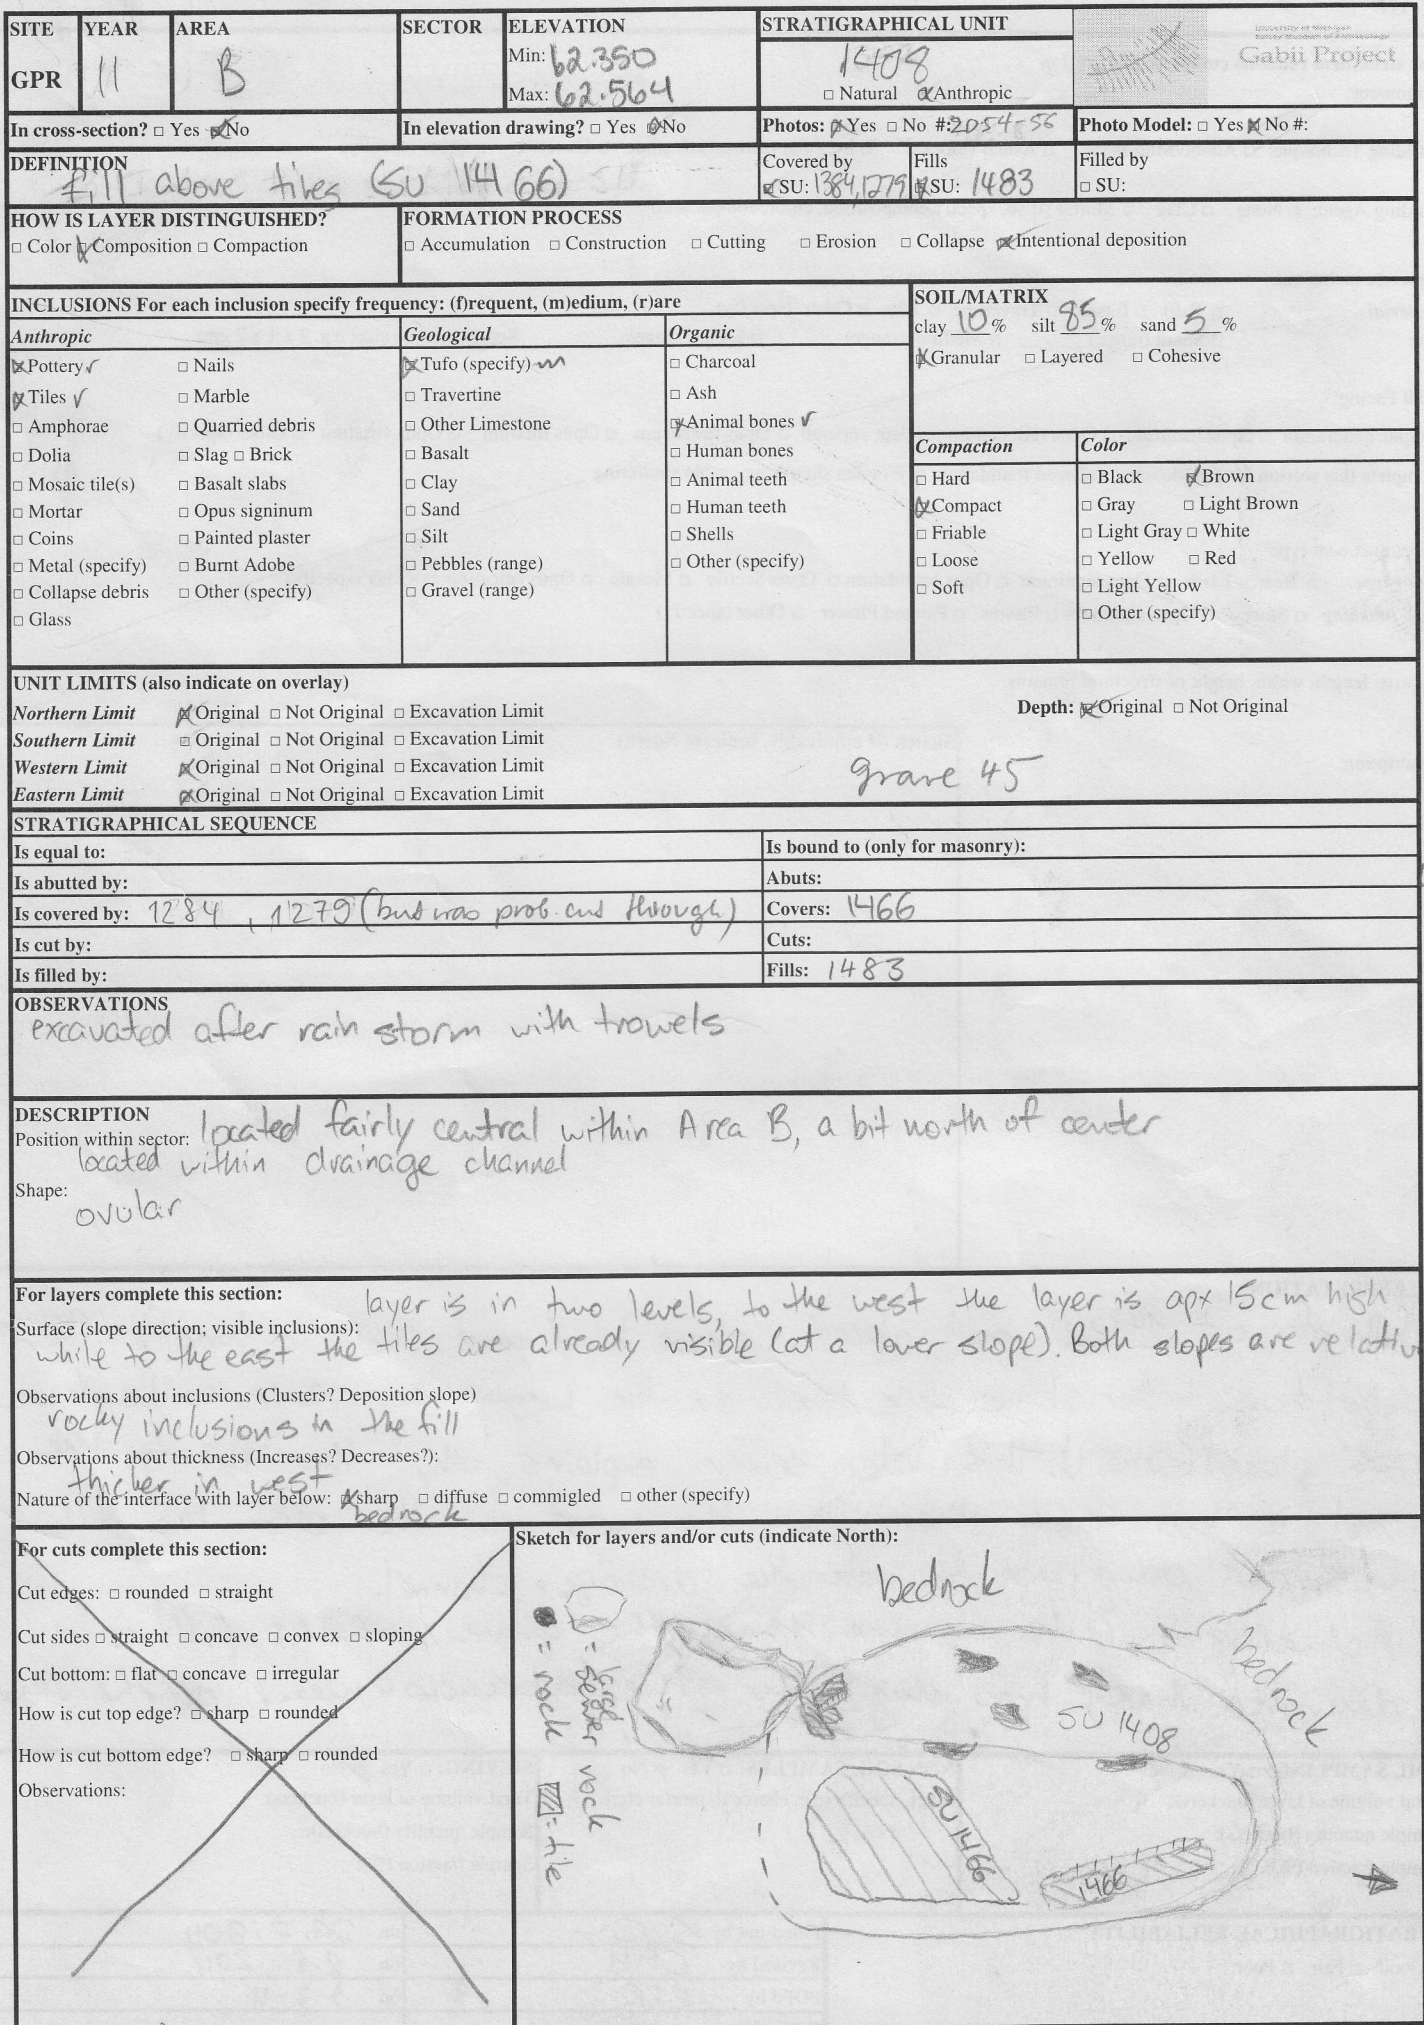 SITE YEAR AREA SECTOR ELEVATION STRATIGRAPHICAL UNIT
GPR 11 B Min: 62.350 1408 Gabii Project
Max: 62.564 □ Natural ☒ Anthropic
In cross-section? □ Yes ☒ No In elevation drawing? □ Yes ☒ No Photos: ☒ Yes □ No #: 2054-56 Photo Model: □ Yes ☒ No #:
DEFINITION Covered by Fills Filled by
fill above tiles (SU 1466) ☒ SU: 1384, 1279 ☒ SU: 1483 □ SU:
HOW IS LAYER DISTINGUISHED? FORMATION PROCESS
□ Color ☒ Composition □ Compaction □ Accumulation □ Construction □ Cutting □ Erosion □ Collapse ☒ Intentional deposition
INCLUSIONS For each inclusion specify frequency: (f)requent, (m)edium, (r)are
Anthropic
☒ Pottery ✓ □ Nails
☒ Tiles ✓ □ Marble
□ Amphorae □ Quarried debris
□ Dolia □ Slag □ Brick
□ Mosaic tile(s) □ Basalt slabs
□ Mortar □ Opus signinum
□ Coins □ Painted plaster
□ Metal (specify) □ Burnt Adobe
□ Collapse debris □ Other (specify)
□ Glass
Geological
☒ Tufo (specify) m
□ Travertine
□ Other Limestone
□ Basalt
□ Clay
□ Sand
□ Silt
□ Pebbles (range)
□ Gravel (range)
Organic
□ Charcoal
□ Ash
☒ Animal bones ✓
□ Human bones
□ Animal teeth
□ Human teeth
□ Shells
□ Other (specify)
SOIL/MATRIX
clay 10 % silt 85 % sand 5 %
☒ Granular □ Layered □ Cohesive
Compaction
□ Hard
☒ Compact
□ Friable
□ Loose
□ Soft
Color
□ Black ☒ Brown
□ Gray □ Light Brown
□ Light Gray □ White
□ Yellow □ Red
□ Light Yellow
□ Other (specify)
UNIT LIMITS (also indicate on overlay)
Northern Limit ☒ Original □ Not Original □ Excavation Limit Depth: ☒ Original □ Not Original
Southern Limit □ Original □ Not Original □ Excavation Limit
Western Limit ☒ Original □ Not Original □ Excavation Limit grave 45
Eastern Limit ☒ Original □ Not Original □ Excavation Limit
STRATIGRAPHICAL SEQUENCE
Is equal to: Is bound to (only for masonry):
Is abutted by: Abuts:
Is covered by: 1284, 1279 (but was prob. cut through) Covers: 1466
Is cut by: Cuts:
Is filled by: Fills: 1483
OBSERVATIONS
excavated after rain storm with trowels
DESCRIPTION
Position within sector: located fairly central within Area B, a bit north of center
located within drainage channel
Shape:
ovular
For layers complete this section: layer is in two levels, to the west the layer is apx 15cm high
Surface (slope direction; visible inclusions):
while to the east the tiles are already visible (at a lower slope). Both slopes are relativ
Observations about inclusions (Clusters? Deposition slope)
rocky inclusions in the fill
Observations about thickness (Increases? Decreases?):
thicker in west
Nature of the interface with layer below: ☒ sharp □ diffuse □ commigled □ other (specify)
bedrock
For cuts complete this section:
Cut edges: □ rounded □ straight
Cut sides □ straight □ concave □ convex □ sloping
Cut bottom: □ flat □ concave □ irregular
How is cut top edge? □ sharp □ rounded
How is cut bottom edge? □ sharp □ rounded
Observations:
Sketch for layers and/or cuts (indicate North):
bedrock
bedrock
= rock
= large sewer rock
= tile
SU 1408
SU 1466
1466